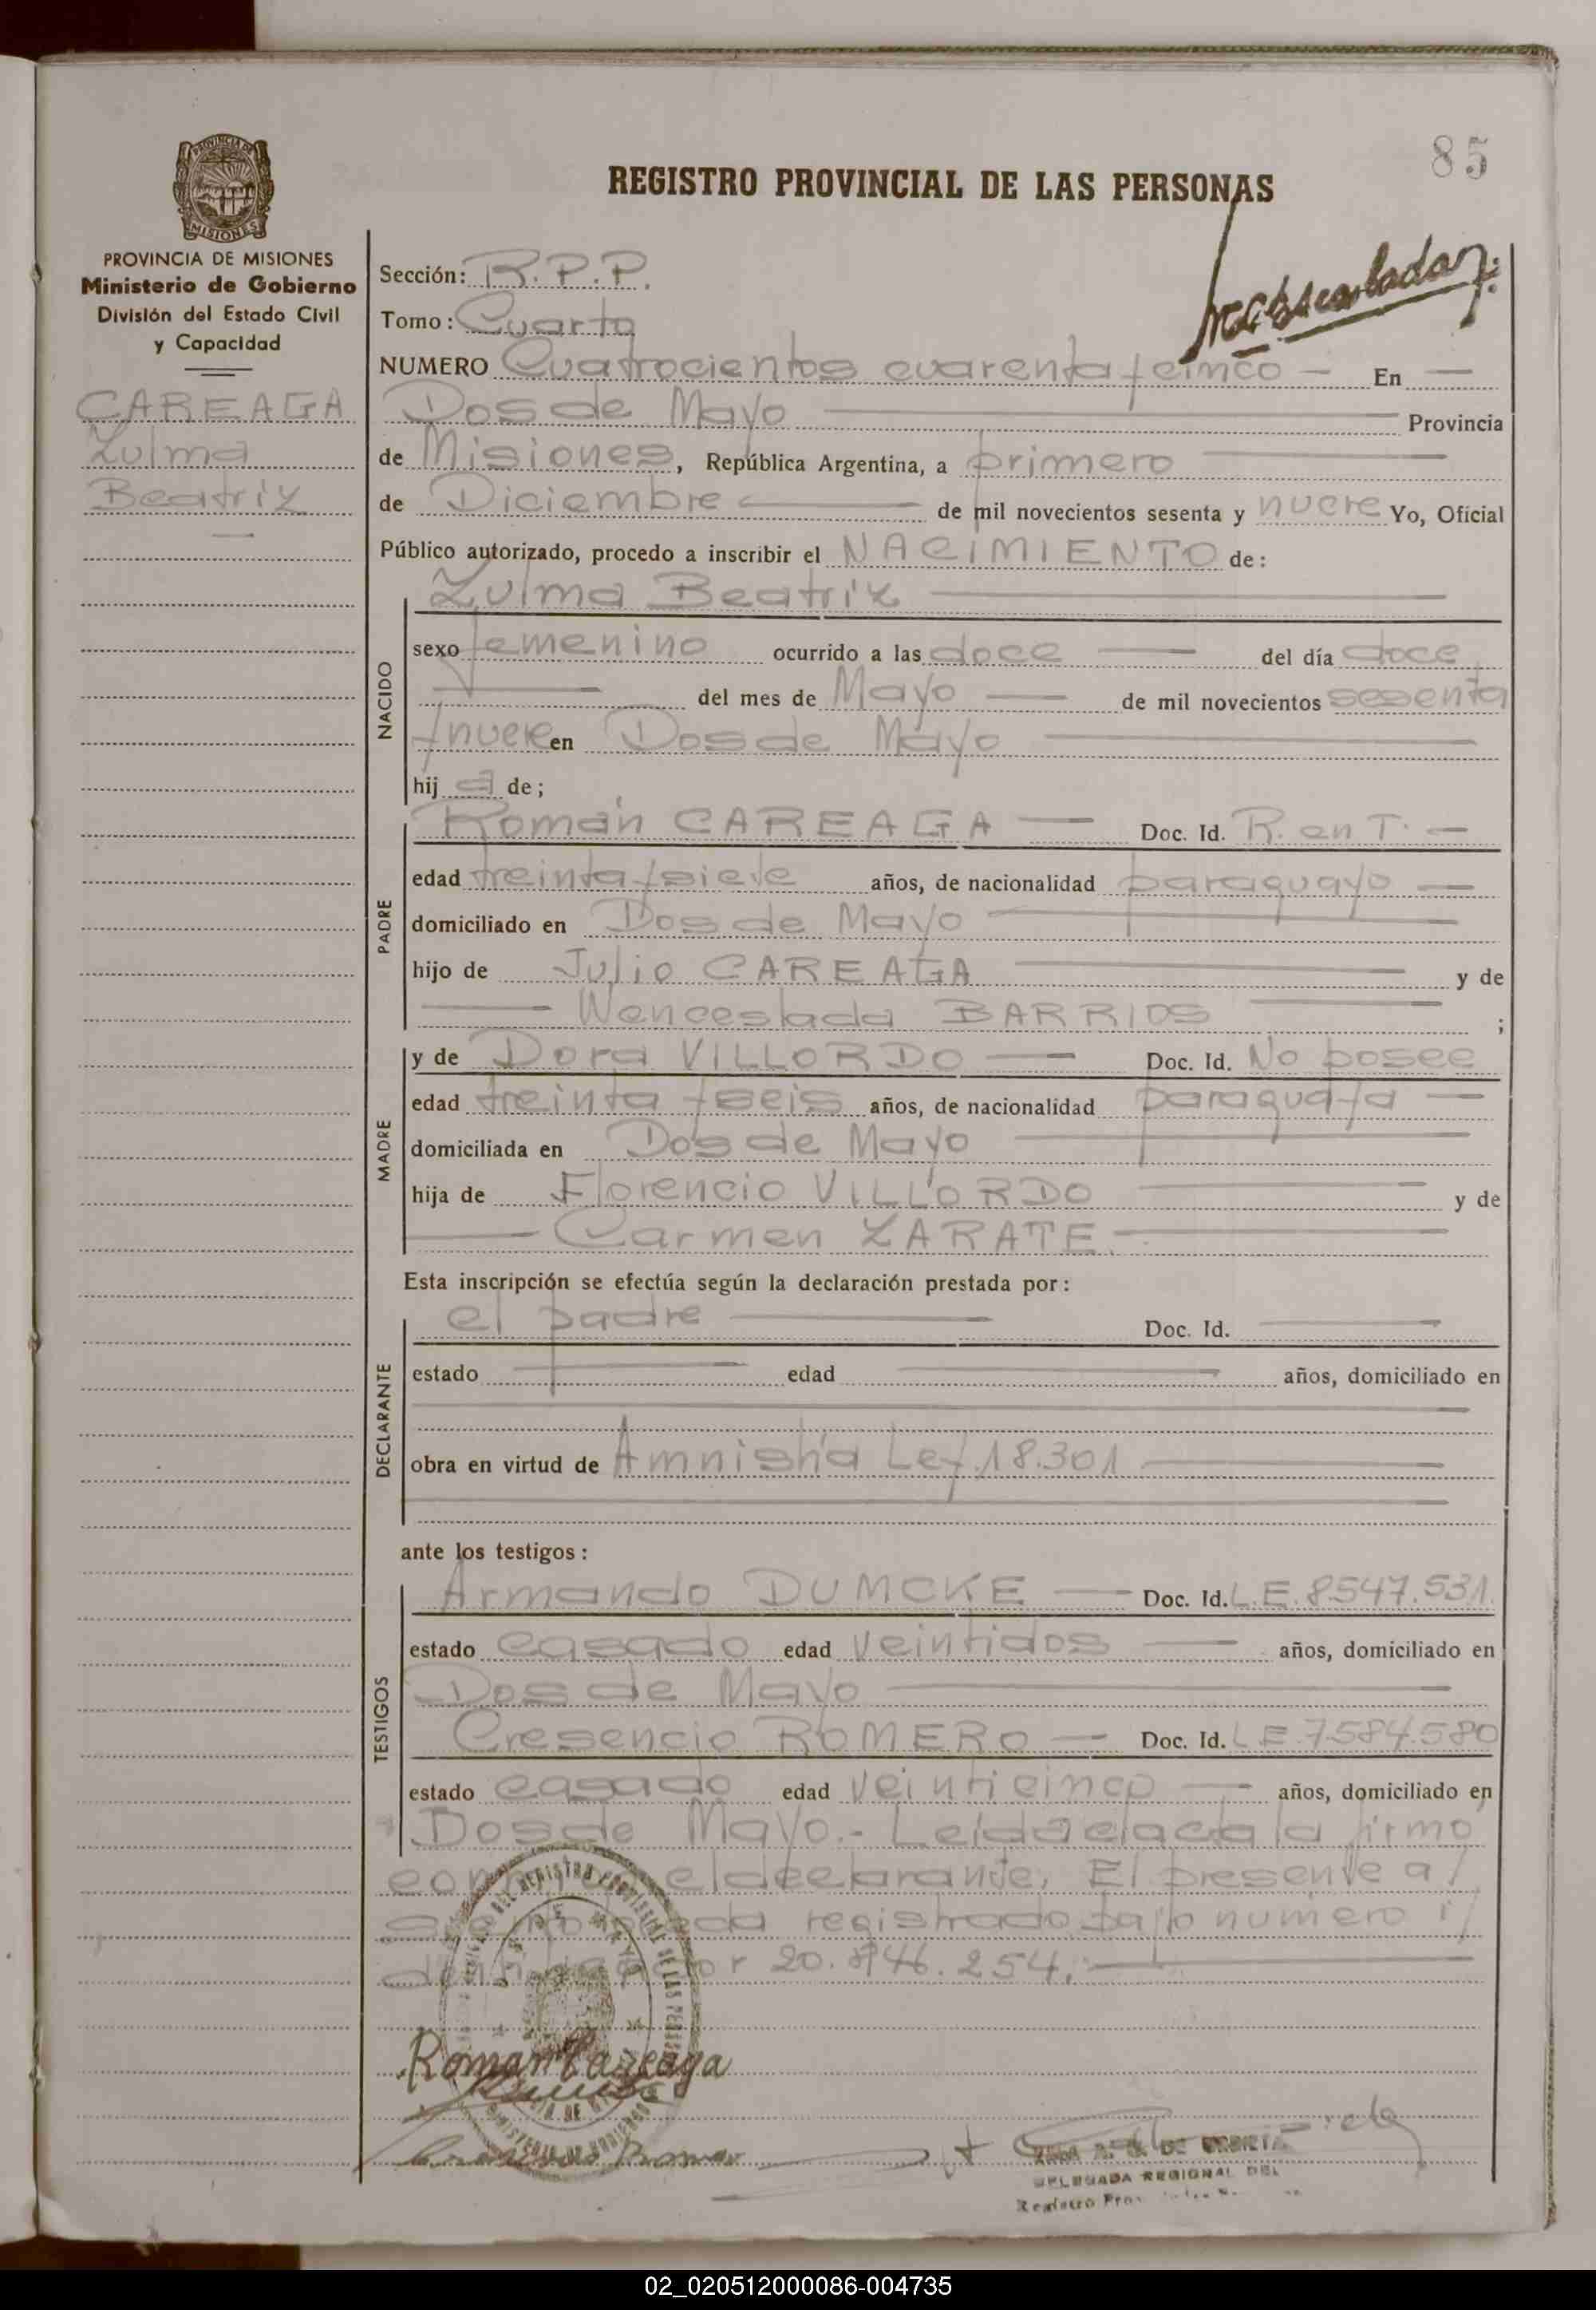 85
REGISTRO PROVINCIAL DE LAS PERSONAS
PROVINCIA DE
MISIONES
PROVINCIA DE MISIONES
Ministerio de Gobierno
División del Estado Civil
y Capacidad
CAREAGA
Zulma
Beatriz
Sección: R.P.P.
Tomo: Cuarto
NUMERO Cuatrocientos cuarenta y cinco — En —
Dos de Mayo — Provincia
de Misiones, República Argentina, a primero
de Diciembre — de mil novecientos sesenta y nueve Yo, Oficial
Público autorizado, procedo a inscribir el NACIMIENTO de:
NACIDO
Zulma Beatriz —
sexo femenino ocurrido a las doce — del día doce
— del mes de Mayo — de mil novecientos sesenta
y nueve en Dos de Mayo —
hij a de;
PADRE
Román CAREAGA — Doc. Id. R. en T. —
edad treinta y siete años, de nacionalidad paraguayo —
domiciliado en Dos de Mayo —
hijo de Julio CAREAGA — y de
— Wenceslada BARRIOS — ;
MADRE
y de Dora VILLORDO — Doc. Id. No posee
edad treinta y seis años, de nacionalidad paraguaya —
domiciliada en Dos de Mayo —
hija de Florencio VILLORDO — y de
— Carmen ZARATE. —
Esta inscripción se efectúa según la declaración prestada por:
DECLARANTE
el padre — Doc. Id. —
estado — edad — años, domiciliado en
—
obra en virtud de Amnistía Ley 18.301 —
ante los testigos:
TESTIGOS
Armando DUMCKE — Doc. Id. L.E. 8547.531.
estado casado edad veintidos — años, domiciliado en
Dos de Mayo —
Cresencio ROMERO — Doc. Id. L E 7584.580
estado casado edad veinticinco — años, domiciliado en
Dos de Mayo.- Leida el acta la firmo
el declarante. El presente a/
registrado bajo numero i/
20.846.254. —
Roman Careaga
DELEGADA REGIONAL DEL
02_020512000086-004735